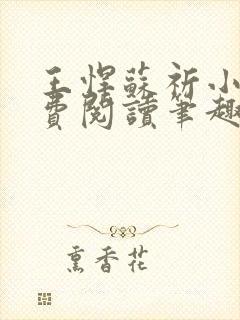 王悍蘇祈小
費閱讀筆趣
熏香花